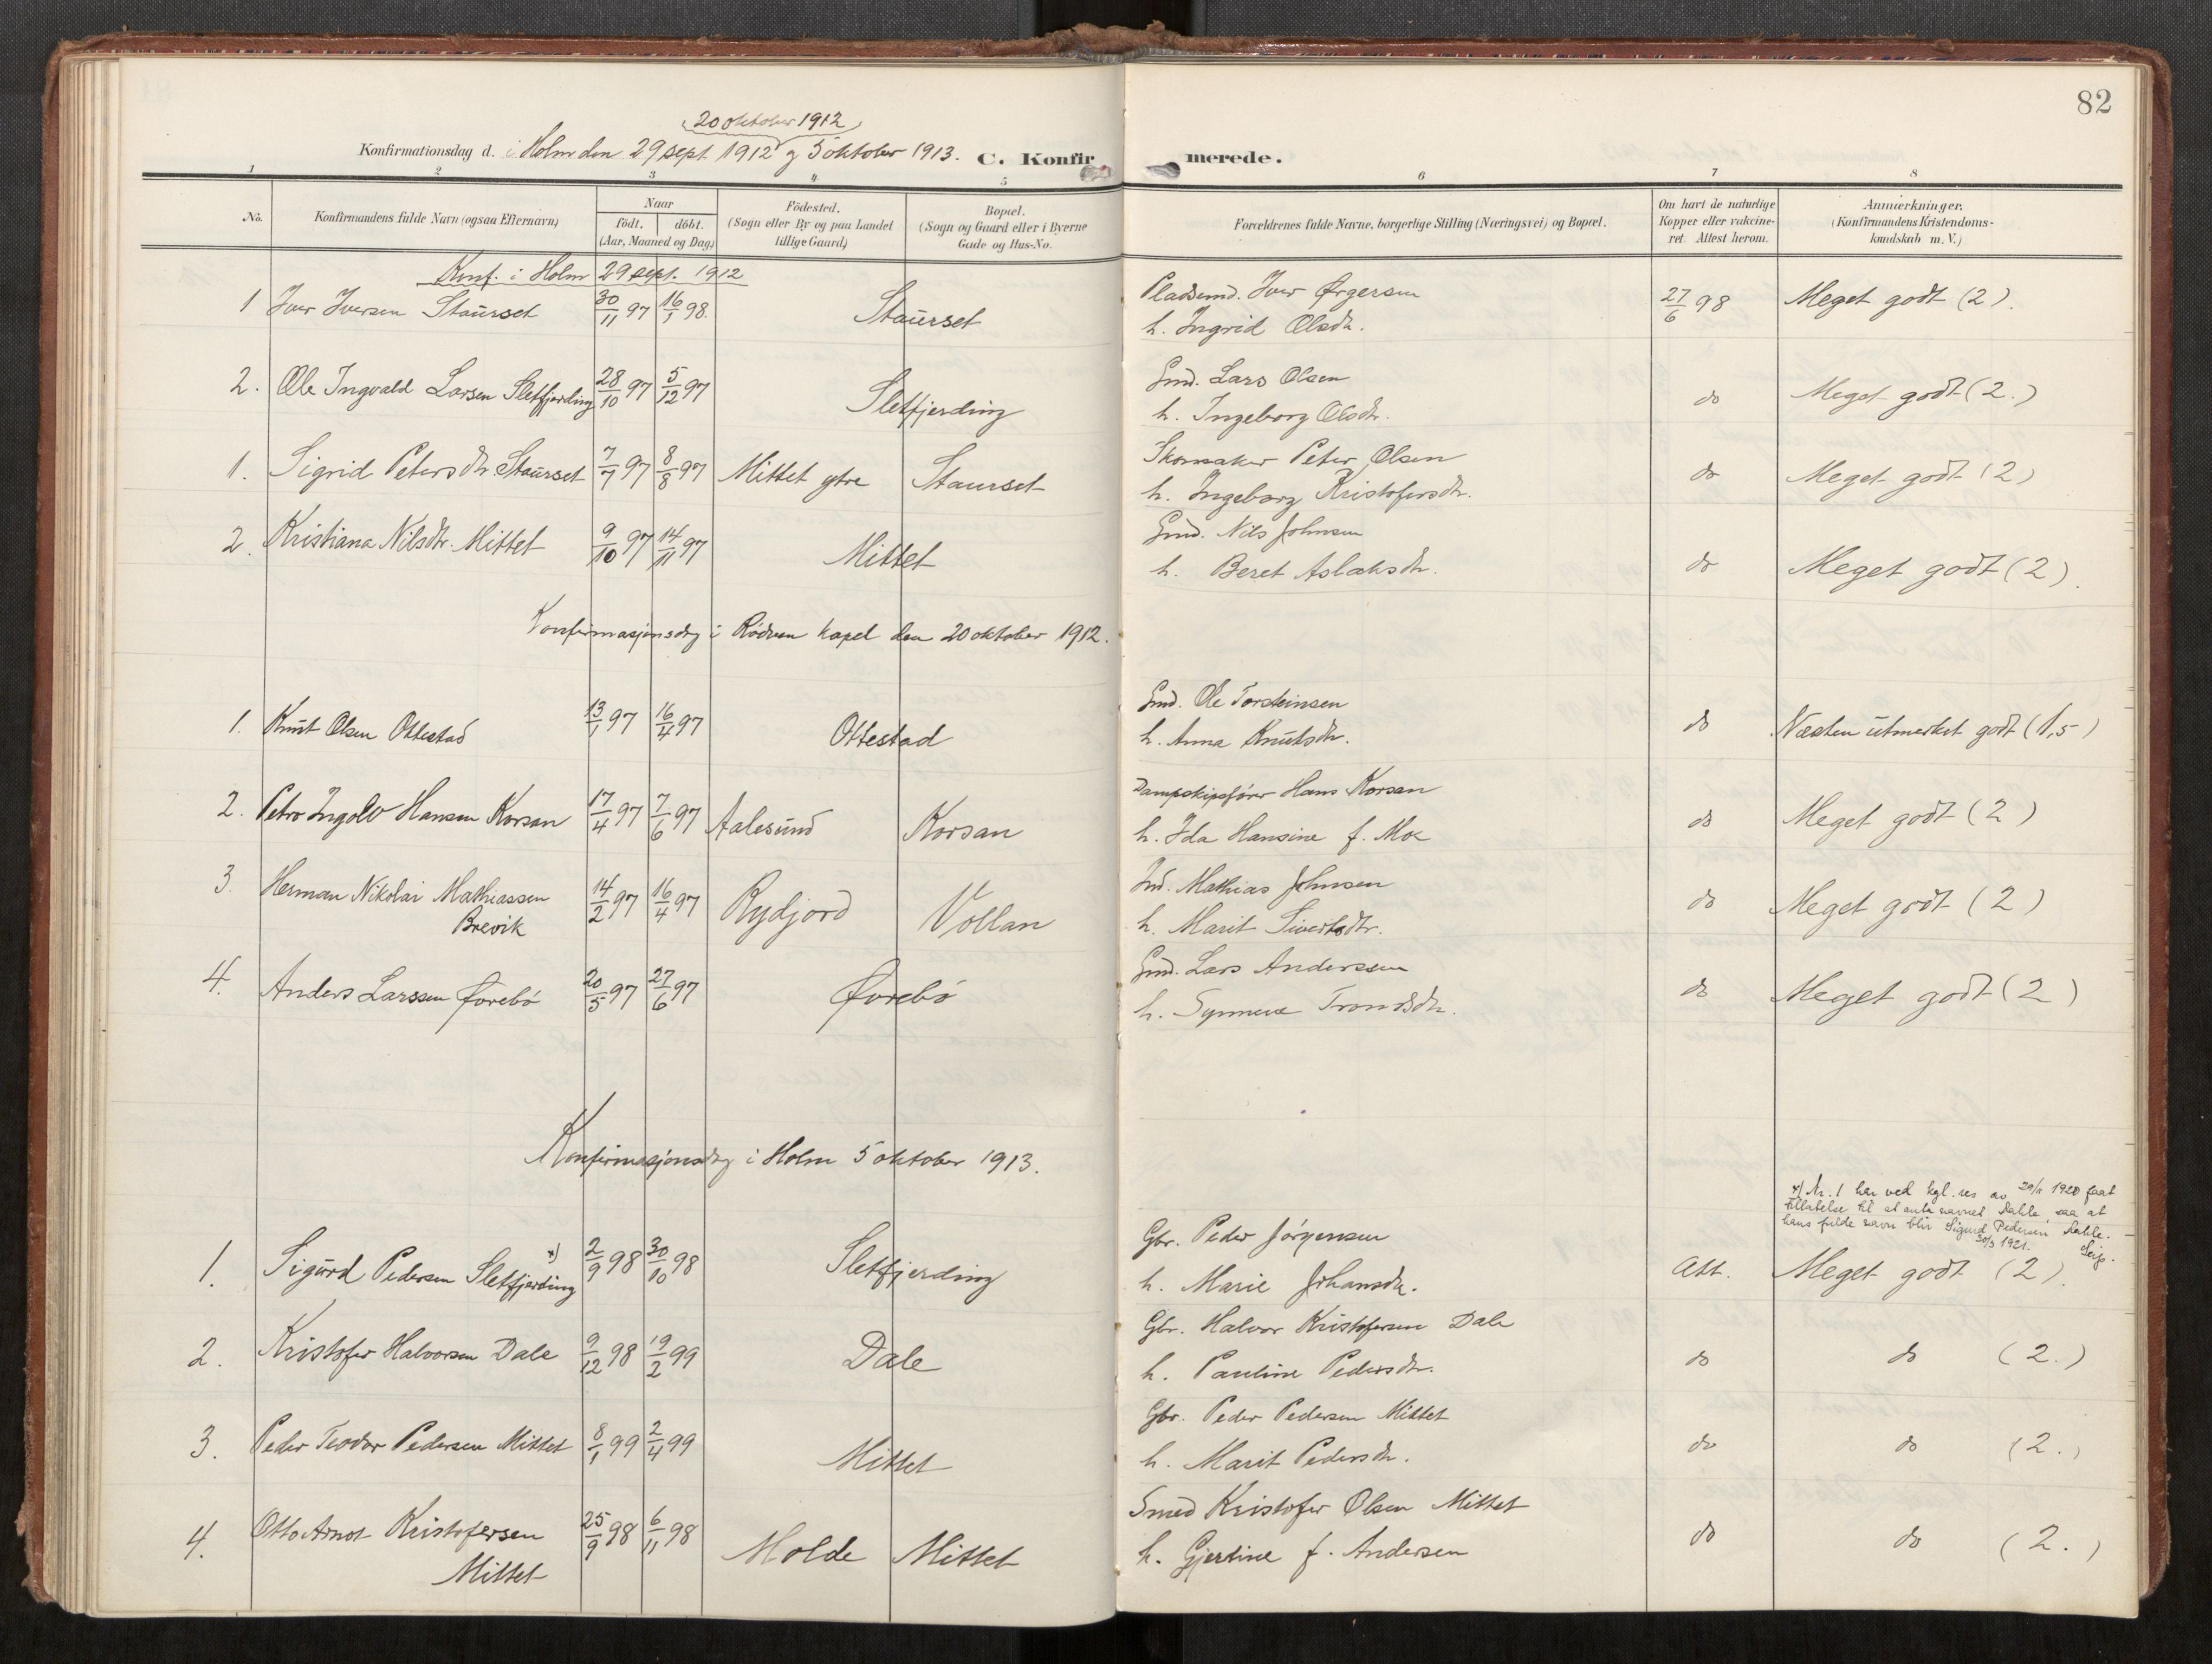 82
20 oktober 1912
Konfirmationsdag d. i Holm den 29 sept 1912 og 5 oktober 1913. C. Konfirmerede.
1 2 3 4 5 6 7 8
No. Konfirmandens fulde Navn (ogsaa Efternavn) Naar födt. döbt. (Aar, Maaned og Dag) Födested. (Sogn eller By og paa Landet tillige Gaard) Bopæl. (Sogn og Gaard eller i Byerne Gade og Hus-No. Forældrenes fulde Navne, borgerlige Stilling (Næringsvei) og Bopæl. Om havt de naturlige Kopper eller vakcineret. Attest herom. Anmærkninger. (Konfirmandens Kristendomskundskab m. V.)
Konf. i Holm 29 sept. 1912
1 Iver Iversen Staurset 30/11 97 16/1 98. Staurset Pladsmd. Iver Ørgersen 27/6 98 Meget godt (2).
h. Ingrid Olsdtr.
2. Ole Ingvald Larsen Sletfjerding 28/10 97 5/12 97 Sletfjerding Gmd. Lars Olsen do Meget godt (2.)
h. Ingeborg Olsdtr.
1. Sigrid Petersdtr Staurset 7/7 97 8/8 97 Mittet ytre Staurset Skomaker Peter Olsen do Meget godt (2)
h. Ingeborg Kristofersdtr.
2. Kristiana Nilsdtr. Mittet 9/10 97 14/11 97 Mittet Gmd. Nils Johnsen do Meget godt (2).
h. Beret Aslaksdtr.
Konfirmasjonsdag i Rödven kapel den 20 oktober 1912.
1. Knut Olsen Ottestad 13/1 97 16/4 97 Ottestad Gmd. Ole Torsteinsen do Næsten utmerket godt (1,5)
h. Anna Knutsdtr.
2. Petro Ingolv Hansen Korsan 17/4 97 7/6 97 Aalesund Korsan Dampskipsfører Hans Korsan do Meget godt (2)
h. Ida Hansine f. Moe
3. Herman Nikolai Mathiassen 14/2 97 16/4 97 Rydjord Vollan Ind. Mathias Johnsen do Meget godt (2)
Brevik h. Marit Sivertsdtr.
4. Anders Larssen Øverbö 20/5 97 27/6 97 Øverbö Gmd. Lars Anderssen do Meget godt (2)
h. Synneve Trondsdtr.
Konfirmasjonsdag i Holm 5 oktober 1913.
x) Nr. 1 har ved kgl. res av 29/1 1920 faat
tillatelse til at anta navnet Dahle, saa at
hans fulde navn blir Sigurd Pedersen Dahle.
30/3 1921. Seip.
1. Sigurd Pedersen Sletfjerding x) 2/9 98 30/10 98 Sletfjerding Gbr. Peder Jörgensen Att. Meget godt (2).
h. Marie Johansdtr.
2. Kristofer Halvorsen Dale 9/12 98 19/2 99 Dale Gbr. Halvor Kristofersen Dale do do (2.)
h. Pauline Pedersdtr.
3. Peder Teodor Pedersen Mittet 8/1 99 2/4 99 Mittet Gbr. Peder Pedersen Mittet do do (2.)
h. Marit Pedersdtr.
4. Otto Arnot Kristofersen 25/9 98 6/11 98 Molde Mittet Smed Kristofer Olsen Mittet do do (2.)
Mittet h. Gjertine f. Andersen